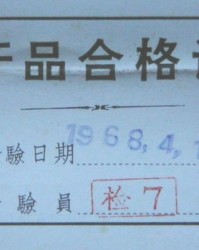 品合格
驗日期 1968,4,
驗員 检7